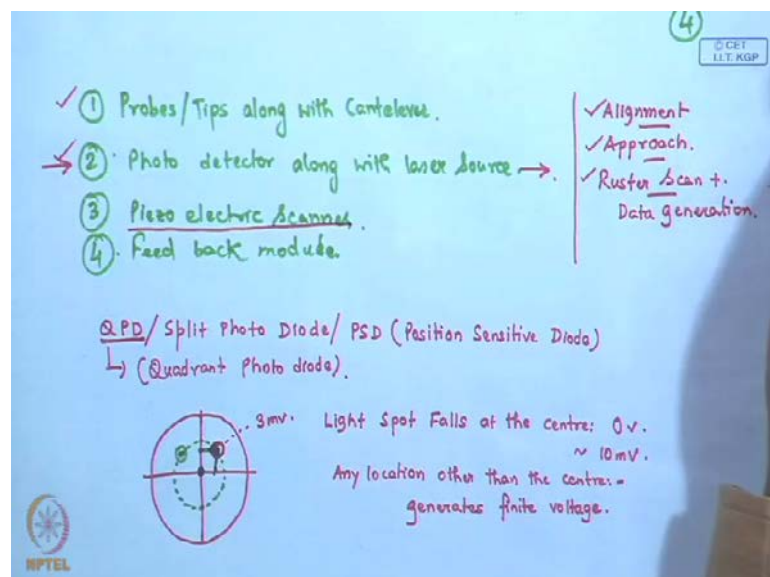 ④
© CET
I.I.T. KGP
① Probes/Tips along with Cantelever.
② Photo detector along with laser source →
③ Piezo electric Scanner.
④ Feed back module.
Alignment
Approach.
Ruster Scan +
Data generation.
QPD/ Split Photo Diode/ PSD (Position Sensitive Diode)
↳ (Quadrant Photo diode).
3mv.
Light Spot Falls at the centre: 0v.
~ 10mV.
Any location other than the centre:-
generates finite voltage.
NPTEL